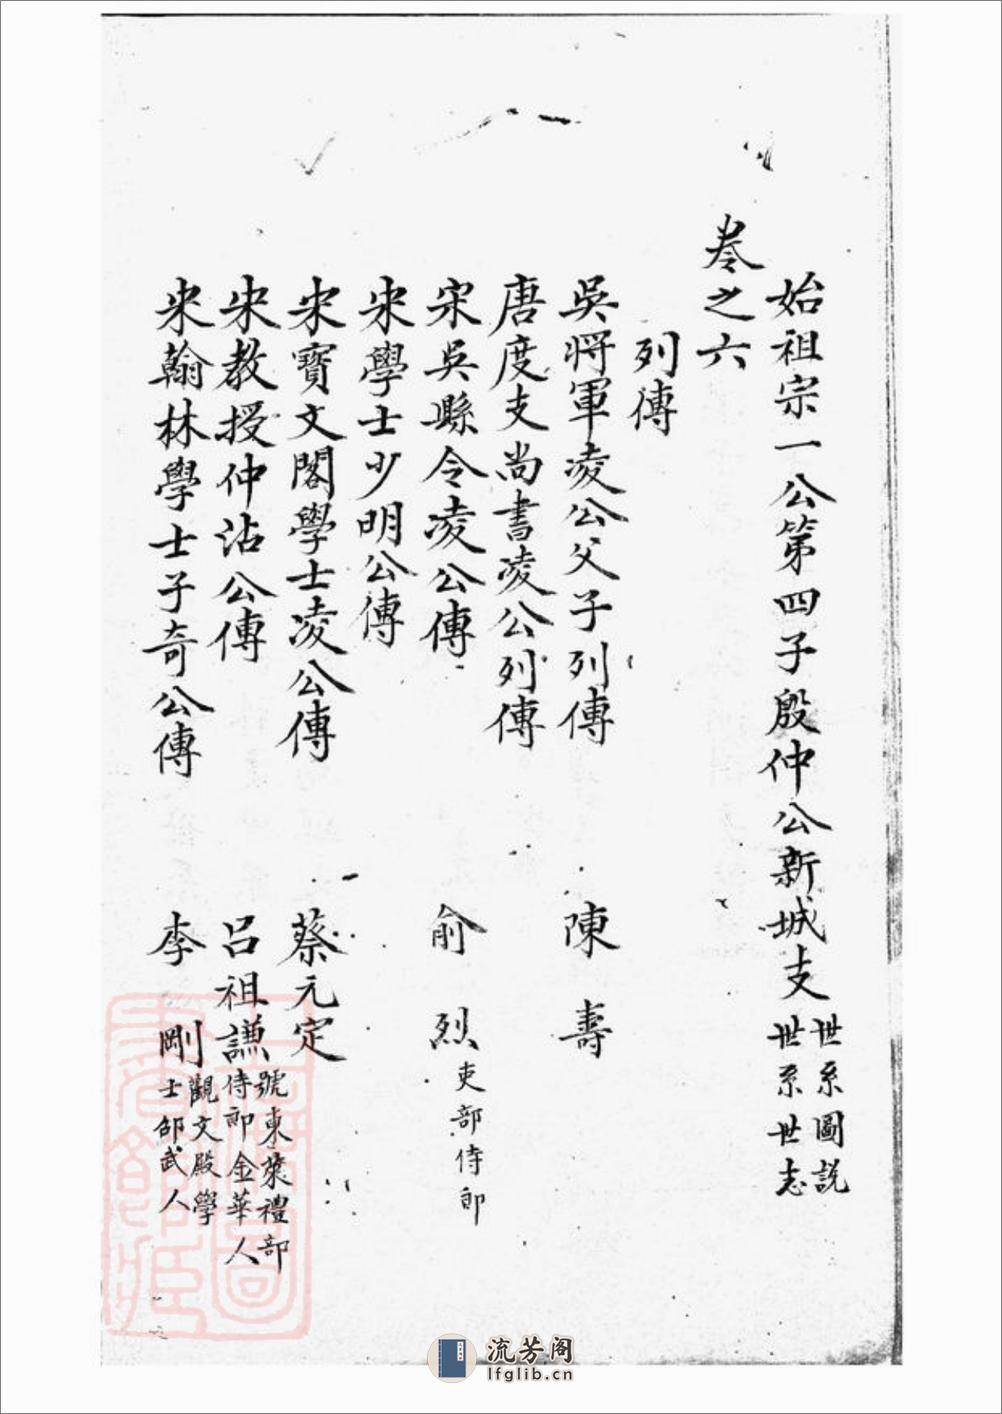 始祖宗一公第四子殷仲公新城支 世系圖説
世系世志
卷之六
列傳
吳將軍凌公父子列傳 陳壽
唐度支尚書凌公列傳
宋吳縣令凌公傳 俞烈 吏部侍郎
宋學士少明公傳
宋寶文閣學士凌公傳 蔡元定
宋教授仲沾公傳 呂祖謙 號東萊禮部
侍郎金華人
宋翰林學士子奇公傳 李剛 觀文殿學
士邵武人
流芳阁
lfglib.cn